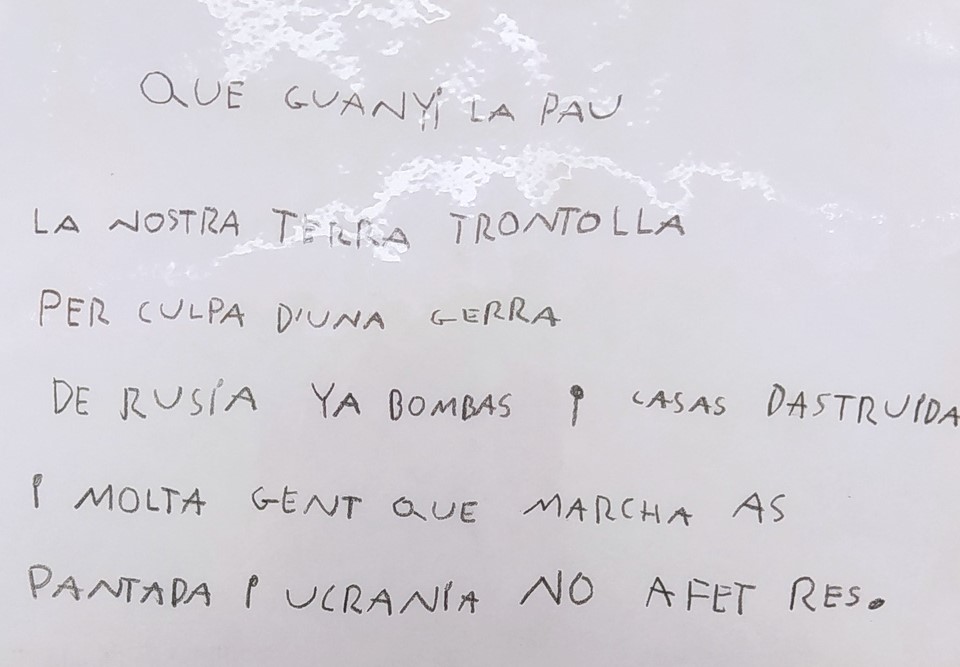 QUE GUANYi LA PAU
LA NOSTRA TERRA TRONTOLLA
PER CULPA D'UNA GERRA
DE RUSÍA YA BOMBAS I CASAS DASTRUIDA
I MOLTA GENT QUE MARCHA AS
PANTADA I UCRANÍA NO AFET RES.